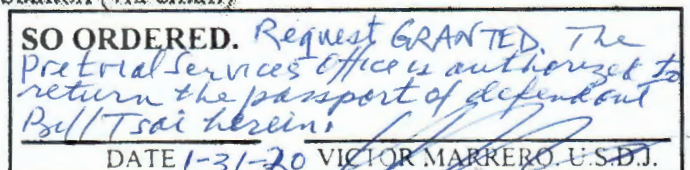 SO ORDERED. Request GRANTED. The
Pretrial Services Office is authorized to
return the passport of defendant
Bill Tsai herein.
DATE 1-31-20 VICTOR MARRERO. U.S.D.J.